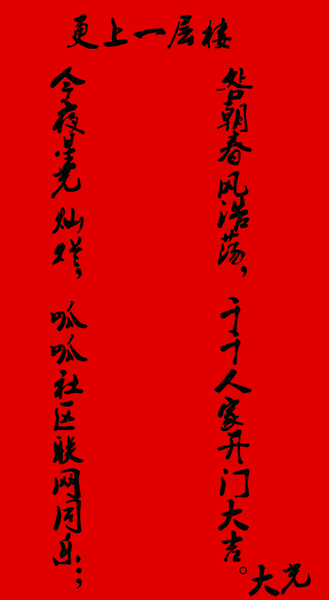 更上一层楼
今夜星光灿烂，呱呱社区联网同乐；
朝春风浩荡，千千人家开门大吉。
大光